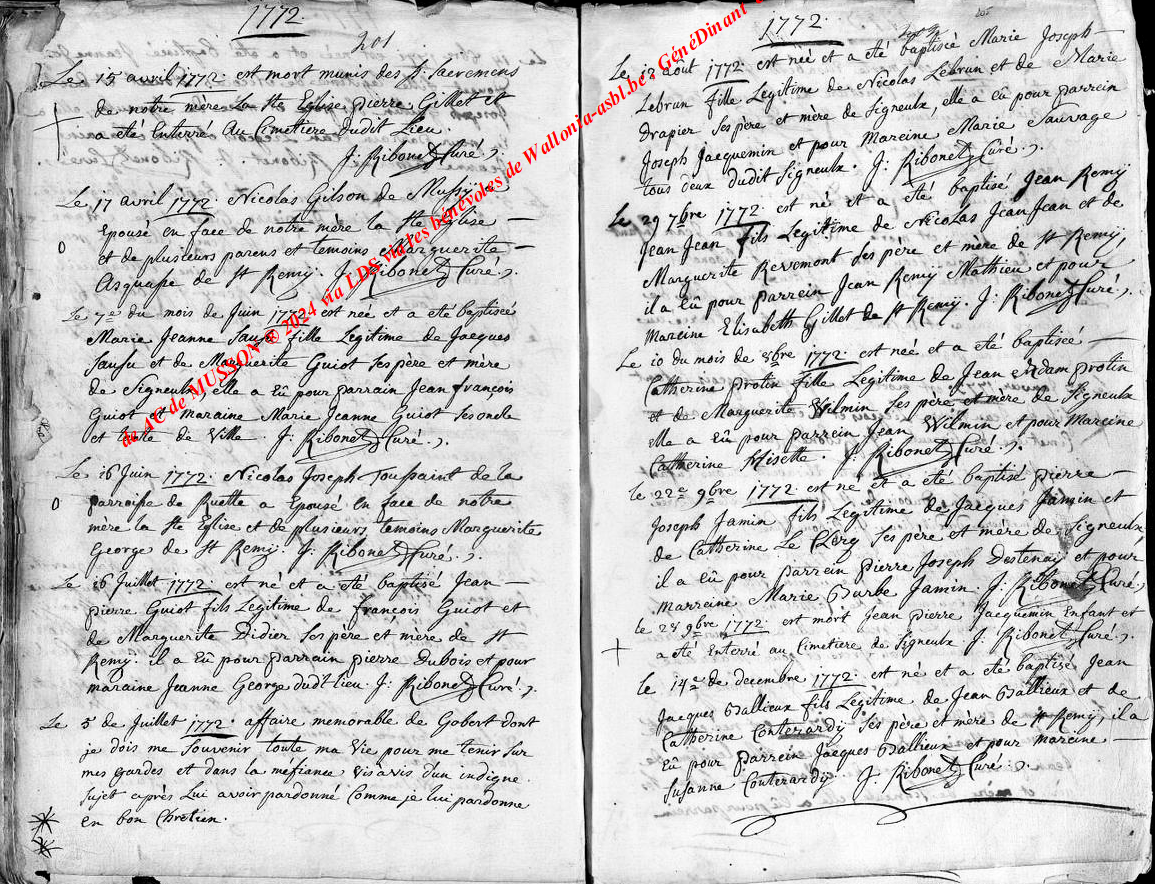 1772.
201
Le 15 avril 1772. est mort munis des st. Sacremens
de notre mère La Ste Eglise pierre Gillet et
a eté Enterré Au Cimetiere Dudit Lieu.
J: Ribonet Curé.
Le 17 avril 1772. Nicolas Gilson de Mussy a
Epousé en face de notre mère la Ste Eglise
0 et de plusieurs parens et temoins Marguerite
de St Remy. J: Ribonet Curé.
Le 7e du mois de Juin 1772 est née et a été baptisée
Marie Jeanne Saufu fille Legitime de Jacques
Saufu et de Marguerite Guiot ses père et mère
de Signeulx, elle a Eû pour parrain Jean françois
Guiot et maraine Marie Jeanne Guiot ses oncle
et tante de Ville. J: Ribonet Curé.
Le 16 Juin 1772. Nicolas Joseph Toussaint de la
0 parroisse de Ruette a Epousé En face de notre
mere la Ste Eglise et de plusieurs temoins Marguerite
George de St Remy. J: Ribonet Curé.
Le 26 Juillet 1772. est né et a été baptisé Jean
pierre Guiot fils Legitime de françois Guiot et
de Marguerite Didier ses père et mère de St
Remy. il a Eû pour parrain pierre Dubois et pour
maraine Jeanne George dudt Lieu. J: Ribonet Curé.
Le 5 de Juillet 1772. affaire memorable de Gobert dont
je dois me souvenir toute ma vie pour me tenir sur
mes gardes et dans la méfiance visavis d'un indigne
sujet après Lui avoir pardonné comme je lui pardonne
en bon Chretien.
1772.
Le 12 août 1772. est née et a été baptisée Marie Joseph
Lebrun fille Legitime de Nicolas Lebrun et de Marie
Drapier ses père et mère de Signeulx, elle a Eû pour parrein
Joseph Jacquemin et pour Mareine Marie Sauvage
tous deux dudit Signeulx. J: Ribonet Curé.
Le 29 7bre 1772. est né et a été baptisé Jean Remy
Jean Jean fils Legitime de Nicolas Jean Jean et de
Marguerite Revemont ses père et mère de St Remy,
il a Eû pour parrein Jean Remy Mathieu et pour
Mareine Elisabeth Gillet de St Remy. J: Ribonet Curé.
Le 10 du mois de 8bre 1772. est née et a été baptisée
Catherine protin fille Legitime de Jean Adam protin
et de Marguerite Wilmin ses père et mère de Signeulx
elle a Eû pour parrein Jean Wilmin et pour Mareine
Catherine Hisette. J: Ribonet Curé.
le 22e 9bre 1772. est né et a été baptisé pierre
Joseph Jamin fils Legitime de Jacques Jamin et
de Catherine Le Clerg ses père et mère de Signeulx
il a Eû pour parrein pierre Joseph Destenay et pour
marreine Marie Barbe Jamin. J: Ribonet Curé.
le 28 9bre 1772. est mort Jean pierre Jacquemin Enfant et
a été Enterré au Cimetiere de Signeulx J: Ribonet Curé.
le 14e de decembre 1772. est né et a été baptisé Jean
Jacques Ballieux fils Legitime de Jean Ballieux et de
Catherine Conterardy ses père et mère de St Remy, il a
Eû pour parrein Jacques Ballieux et pour mareine
Susanne Conterardy J: Ribonet Curé.
de AC de MUSSON ® 2024 via LDS via les bénévoles de Wallonia-asbl.be : GénéDinant